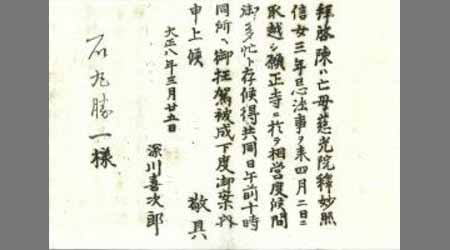 拝啓陳ハ亡母慈光院釋妙照
信女三年忌法事ヲ来四月二日ニ
取越シ願正寺ニ於テ相営度候間
御多忙ト存候得共同日午前十時
同所ヘ御枉駕被成下度御案内
申上候 敬具
大正八年三月廿五日
深川喜次郎
石丸勝一様